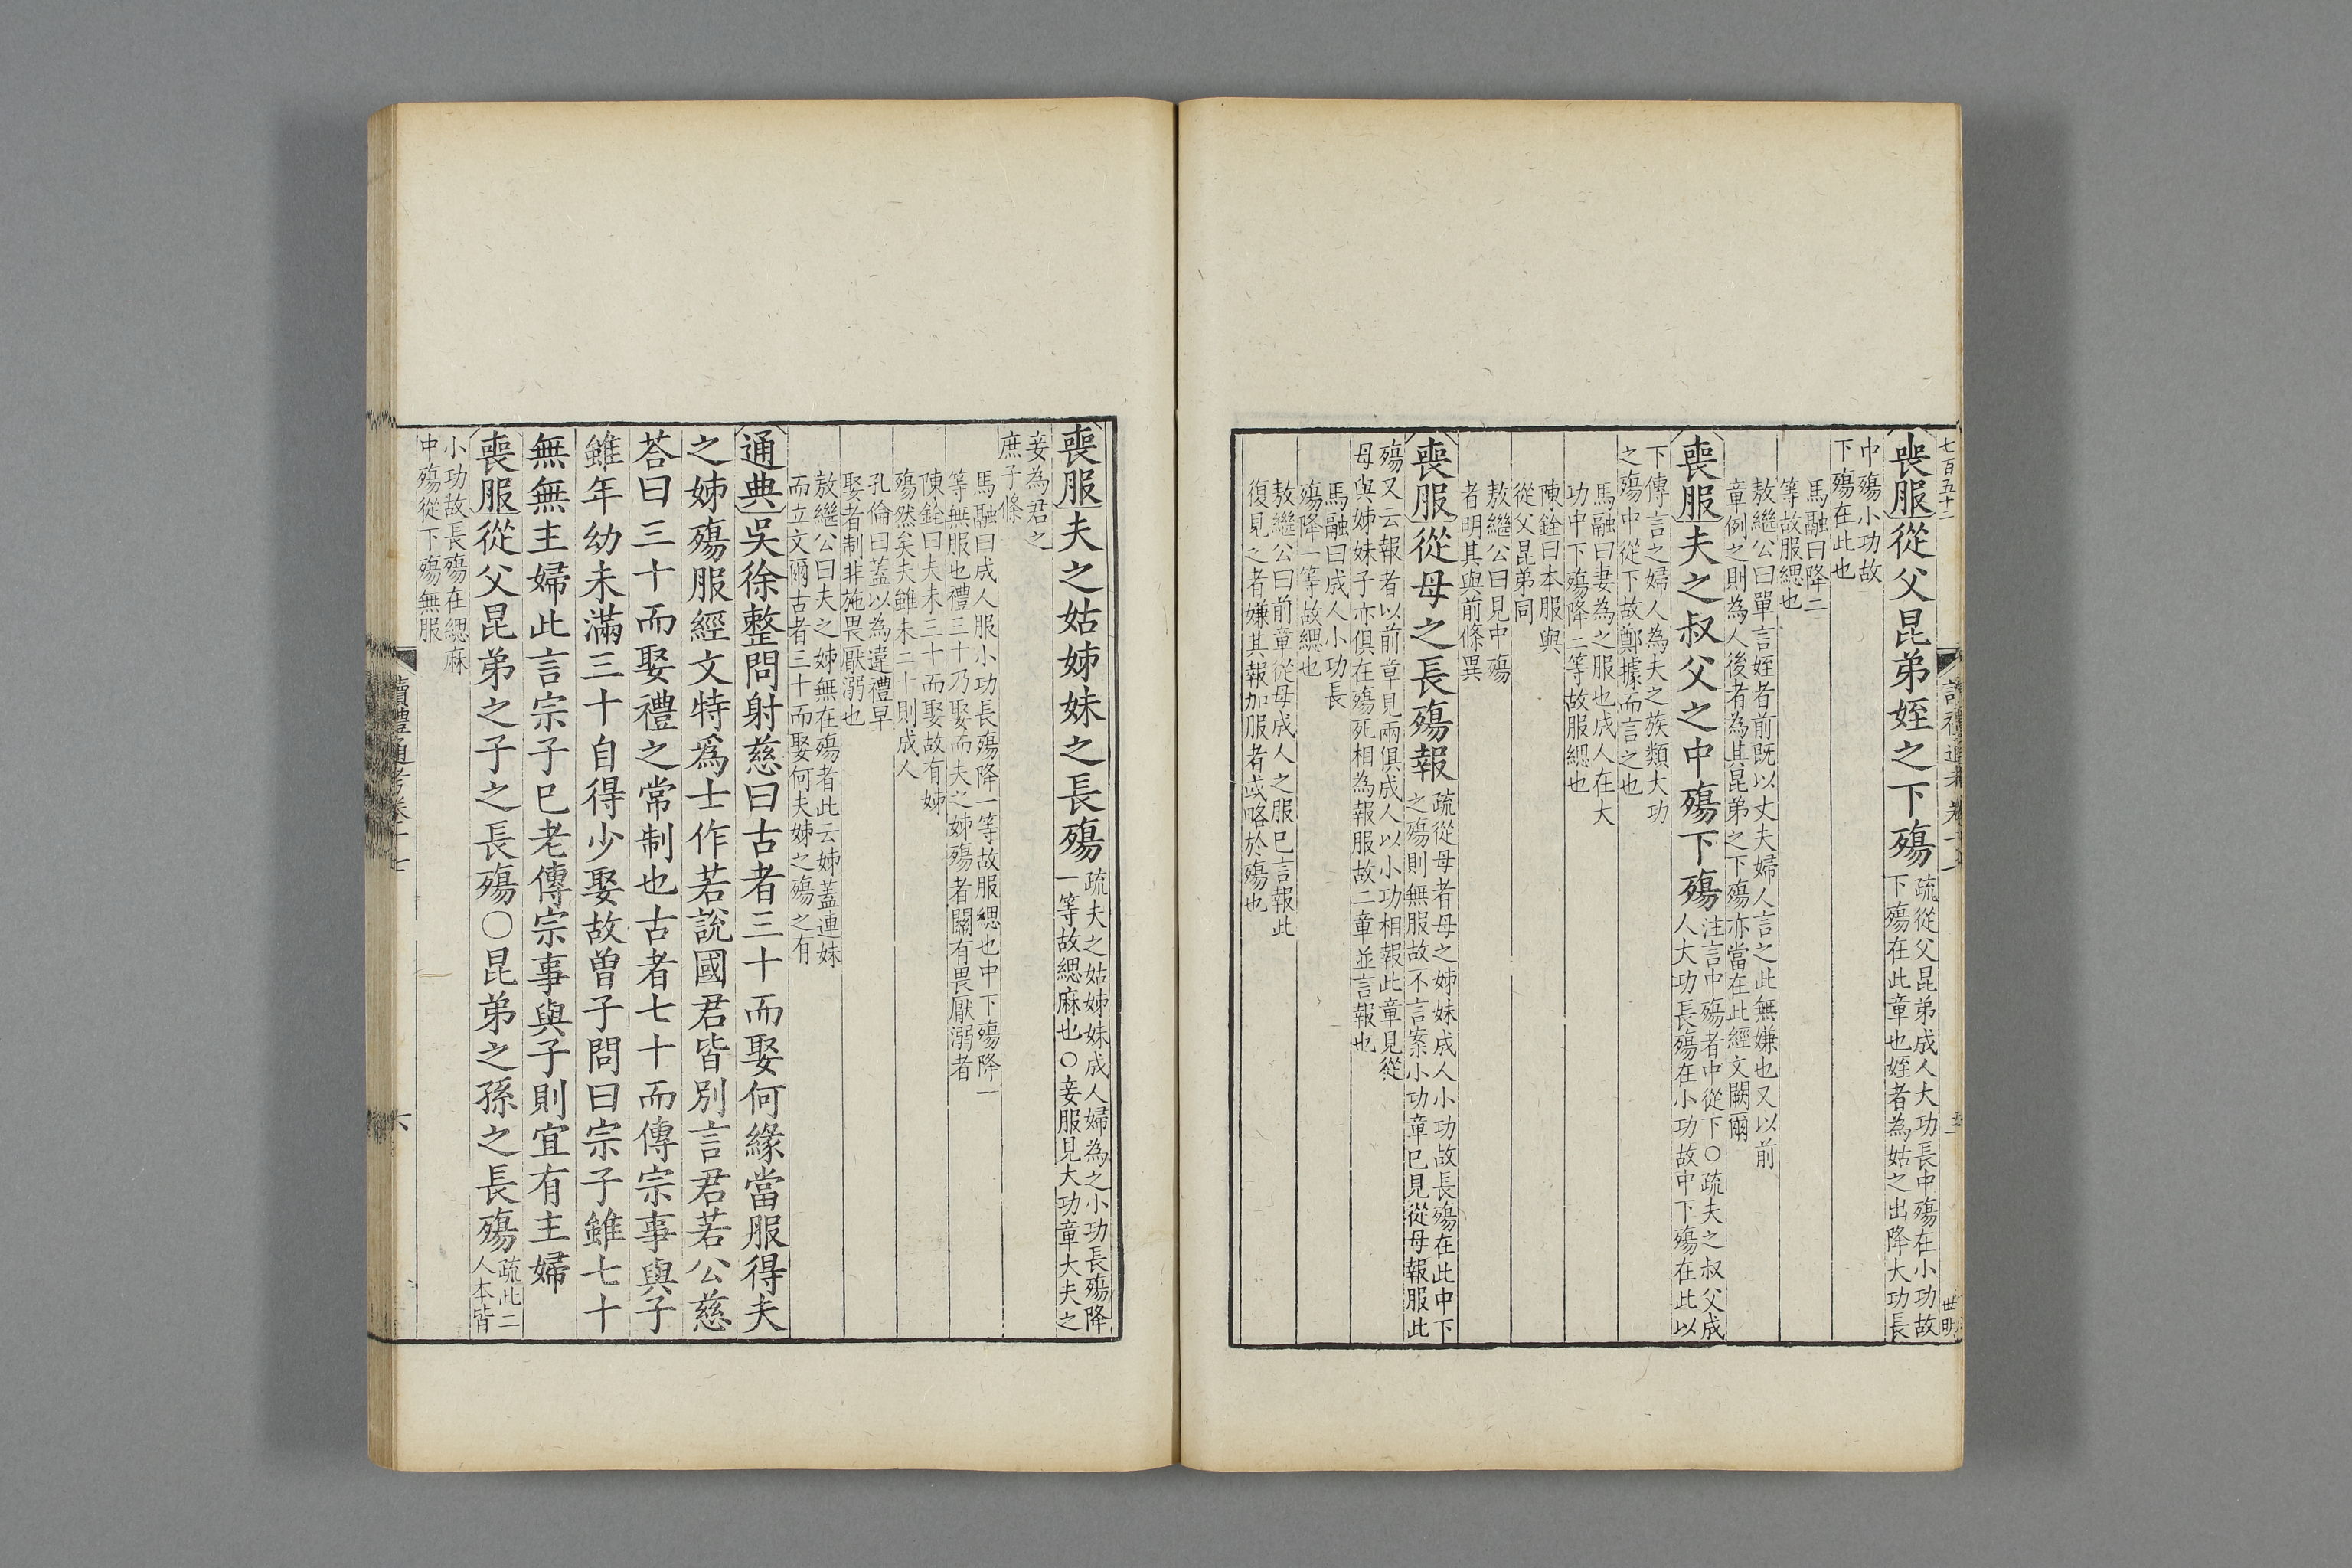 七百五十二
喪服從父昆弟姪之下殤
疏從父昆弟成人大功長中殤在小功故
下殤在此章也姪者為姑之出降大功長
中殤小功故
下殤在此也
馬融曰降二
等故服緦也
敖繼公曰單言姪者前既以丈夫婦人言之此無嫌也又以前
章例之則為人後者為其昆弟之下殤亦當在此經文闕爾
喪服夫之叔父之中殤下殤
注言中殤者中從下○疏夫之叔父成
人大功長殤在小功故中下殤在此以
下傳言之婦人為夫之族類大功
之殤中從下故鄭據而言之也
馬融曰妻為之服也成人在大
功中下殤降二等故服緦也
陳銓曰本服與
從父昆弟同
敖繼公曰見中殤
者明其與前條異
喪服從母之長殤報
疏從母者母之姊妹成人小功故長殤在此中下
之殤則無服故不言案小功章已見從母報服此
殤又云報者以前章見兩俱成人以小功相報此章見從
母與姊妹子亦俱在殤死相為報服故二章並言報也
馬融曰成人小功長
殤降一等故緦也
敖繼公曰前章從母成人之服已言報此
復見之者嫌其報加服者或略於殤也
世明
喪服夫之姑姊妹之長殤
疏夫之姑姊妹成人婦為之小功長殤降
一等故緦麻也○妾服見大功章大夫之
妾為君之
庶子條
馬融曰成人服小功長殤降一等故服緦也中下殤降一
等無服也禮三十乃娶而夫之姊殤者關有畏厭溺者
陳銓曰夫未三十而娶故有姊
殤然矣夫雖未二十則成人
孔倫曰蓋以為違禮早
娶者制非施畏厭溺也
敖繼公曰夫之姊無在殤者此云姊蓋連妹
而立文爾古者三十而娶何夫姊之殤之有
通典吳徐整問射慈曰古者三十而娶何緣當服得夫
之姊殤服經文特爲士作若說國君皆別言君若公慈
荅曰三十而娶禮之常制也古者七十而傳宗事與子
雖年幼未滿三十自得少娶故曾子問曰宗子雖七十
無無主婦此言宗子已老傳宗事與子則宜有主婦
喪服從父昆弟之子之長殤○昆弟之孫之長殤
疏此二
人本皆
小功故長殤在緦麻
中殤從下殤無服
讀禮通考卷十七
六